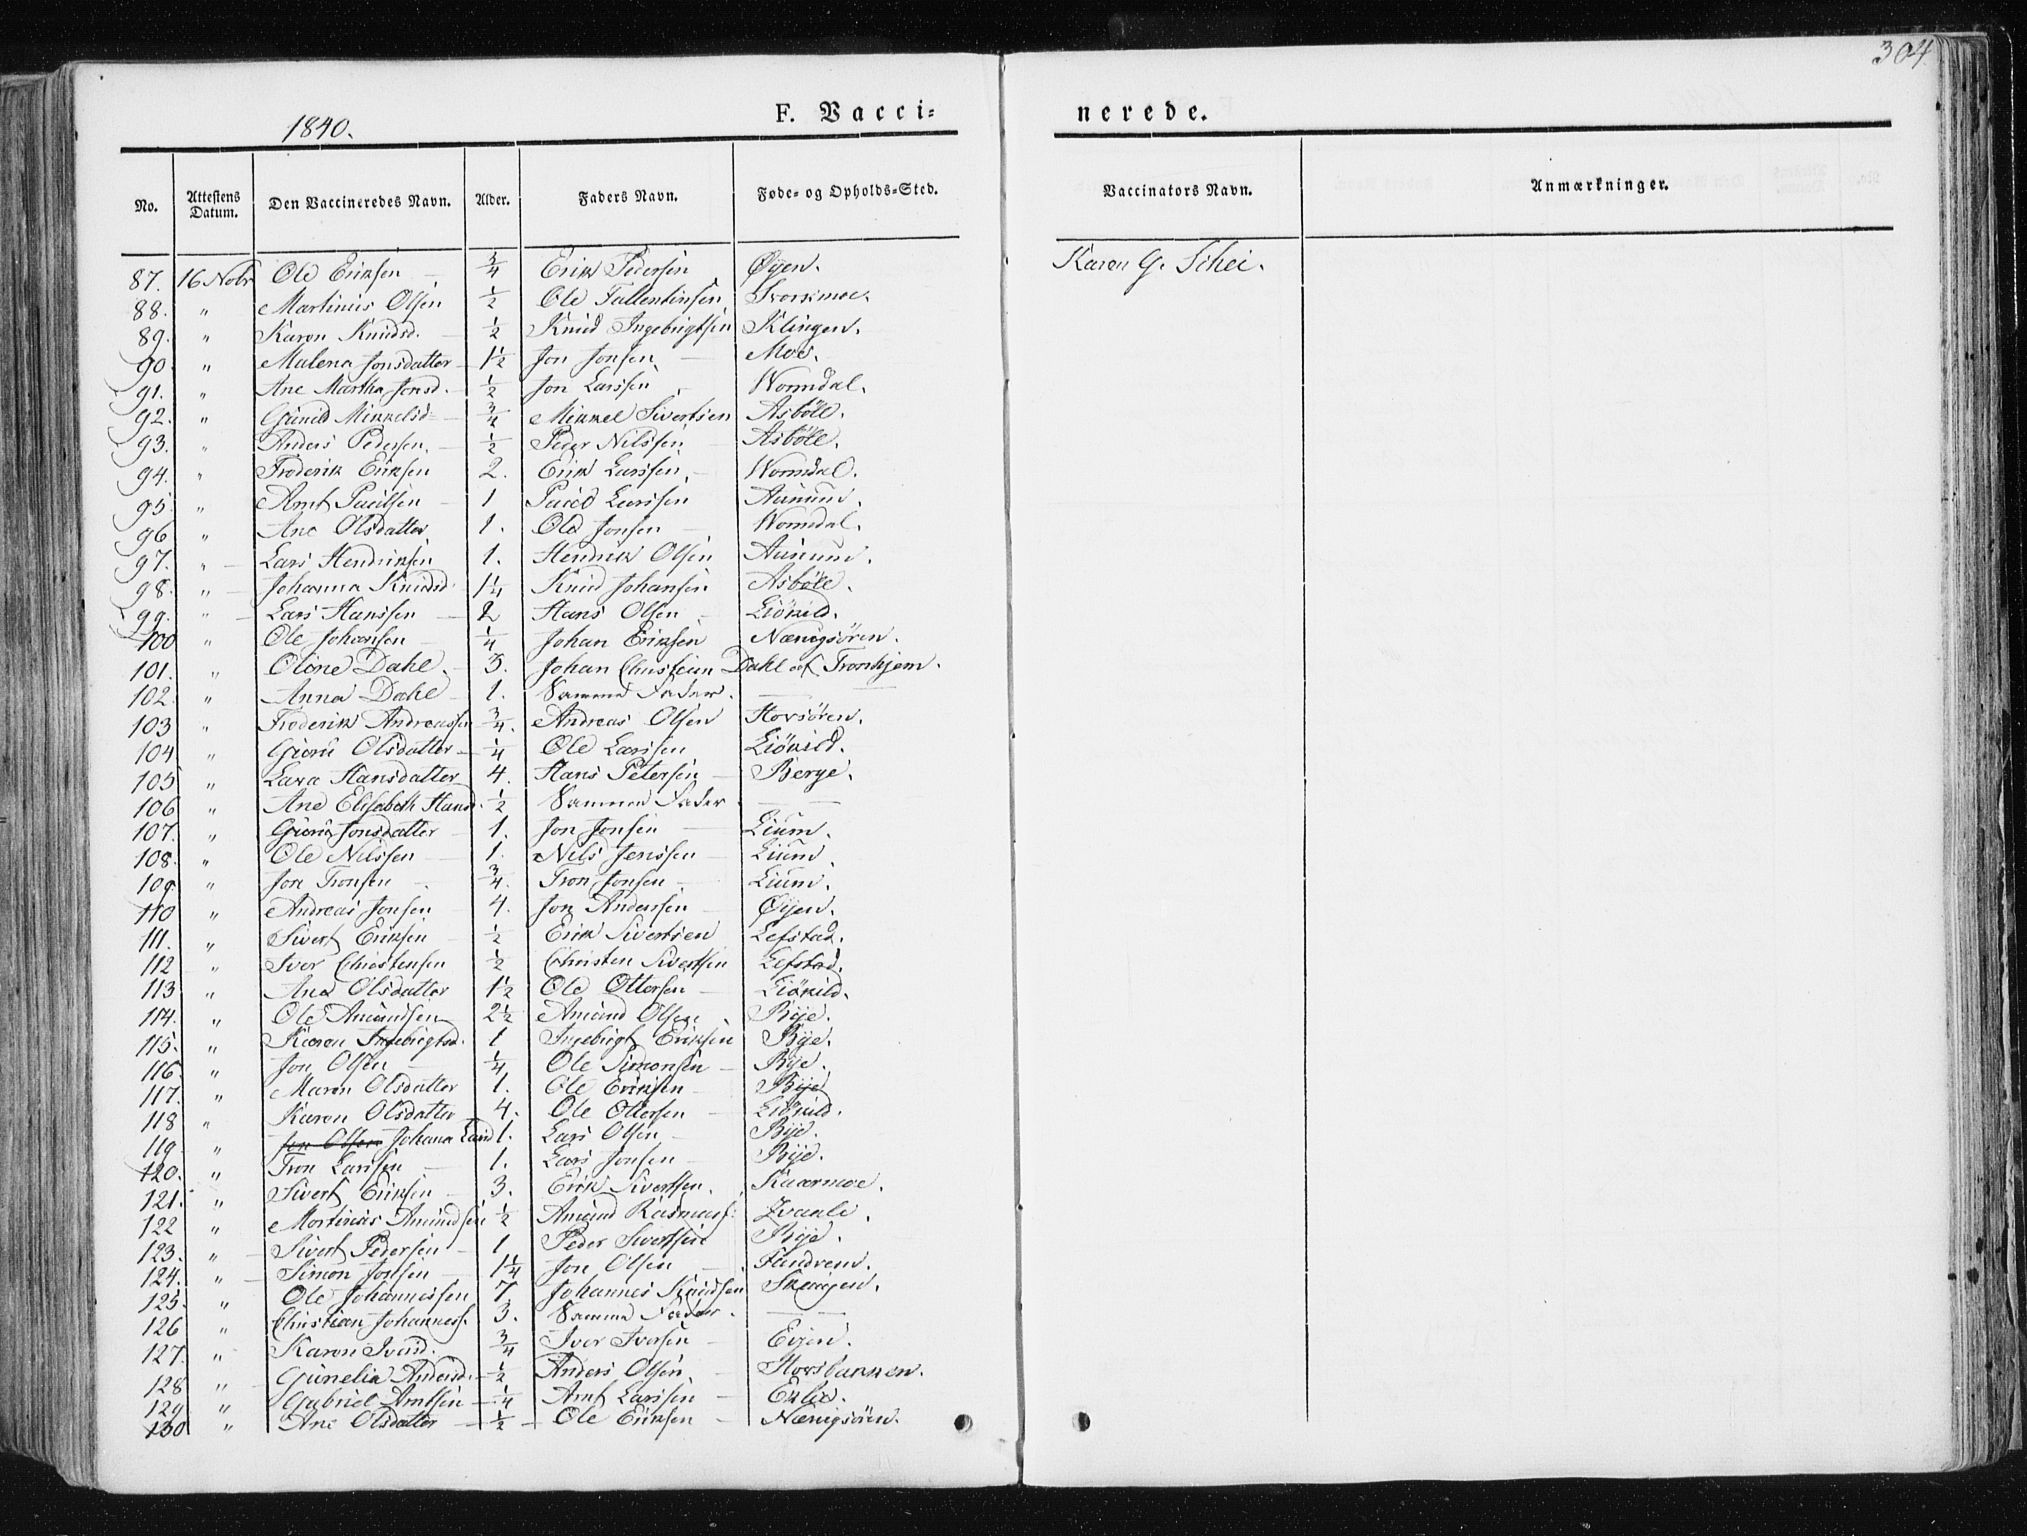 304.
1840.
F. Vacci=
nerede.
No. Attestens Datum. Den Vaccineredes Navn. Alder. Faders Navn. Føde- og Opholds-Sted. Vaccinators Navn. Anmærkninger.
87. 16 Nobr Ole Eriksen 3/4 Erik Pedersen Øyen. Karen G. Schei.
88. " Martinus Olsen 1/2 Ole Tallentinsen Storsmoe.
89. " Karen Knudsd. 1/2 Knud Ingebrigtsen Klingen.
90. " Malena Jonsdatter 1 1/2 Jon Jonsen Moe.
91. " Ane Martha Jonsd. 1/2 Jon Larssen Wormdal.
92. " Gunild Mikkelsd 3/4 Mikkel Sivertsen Asbölle.
93. " Anders Pedersen 1/2 Peder Nilssen Asbölle.
94. " Frederik Eriksen 2. Erik Larssen Wormdal.
95. " Arnt Paulsen 1 Paul Larssen Aunum.
96 " Ane Olsdatter 1. Ole Jonsen Wormdal.
97. " Lars Hendriksen 1. Hendrik Olsen Aunum.
98. " Johanna Knudsd. 1 1/4 Knud Johansen Asbölle.
99. " Lars Hanssen 2 Hans Olsen Liökild.
100 " Ole Johansen 1/4 Johan Eriksen Nænigsören.
101. " Oline Dahl 3. Johan Christian Dahl af Tronhjem.
102. " Anna Dahl 1. Samme Fader.
103 " Frederik Andreassen 3/4. Andreas Olsen Hovsören.
104 " Gjøru Olsdatter 1/4 Ole Larssen Liökild.
105 " Lava Hansdatter 4. Hans Petersen Berge.
106 " Ane Elisabeth Hansd. 1/2 Samme Fader
107. " Gjøru Jonsdatter 1. Jon Jonsen Lium.
108. " Ole Nilssen 1. Nils Jenssen Lium.
109. " Jon Tronsen 3/4. Tron Jonsen Lium.
110 " Andreas Jonsen 4. Jon Anderssen Øyen.
111. " Sivert Eriksen 1/2 Erik Sivertsen Lefstad.
112 " Iver Christensen 1/2 Christen Sivertsen Lefstad.
113 " Ane Olsdatter 1 1/2 Ole Ottersen Liökild.
114. " Ole Amundsen 2 1/2 Amund Olsen Rye.
115. " Karen Ingebrigtsd. 1 Ingebrigt Eriksen Rye.
116. " Jon Olsen 1/4 Ole Simonsen Rye.
117. " Maren Olsdatter 1. Ole Eriksen Rye
118 " Karen Olsdatter 4. Ole Ottersen Liökild.
119. " Jon Olsen Johana Larsd 1. Lars Olsen Rye.
120. " Tron Larssen 1. Lars Jonsen Rye.
121. " Sivert Eriksen 3. Erik Sivertsen Kuærnmoe.
122 " Martinus Amundsen 1/2 Amund Rasmuss.
123. " Sivert Pedersen 1 Peder Sivertsen Rye.
124. " Simon Jonsen 1 1/4 Jon Olsen Fandrem.
125. " Ole Johannessen 7 Johannes Knudsen
126 " Christian Johanness. 3. Samme Fader.
127. " Karen Iversd. 3/4 Iver Iversen Evjen.
128 " Gunelia Andersd. 1/2 Anders Olsen Hovsbakken.
129 " Gabriel Arntsen 1/4 Arnt Larssen Eklie.
130 " Ane Olsdatter 1/2 Ole Eriksen Nænigsören.